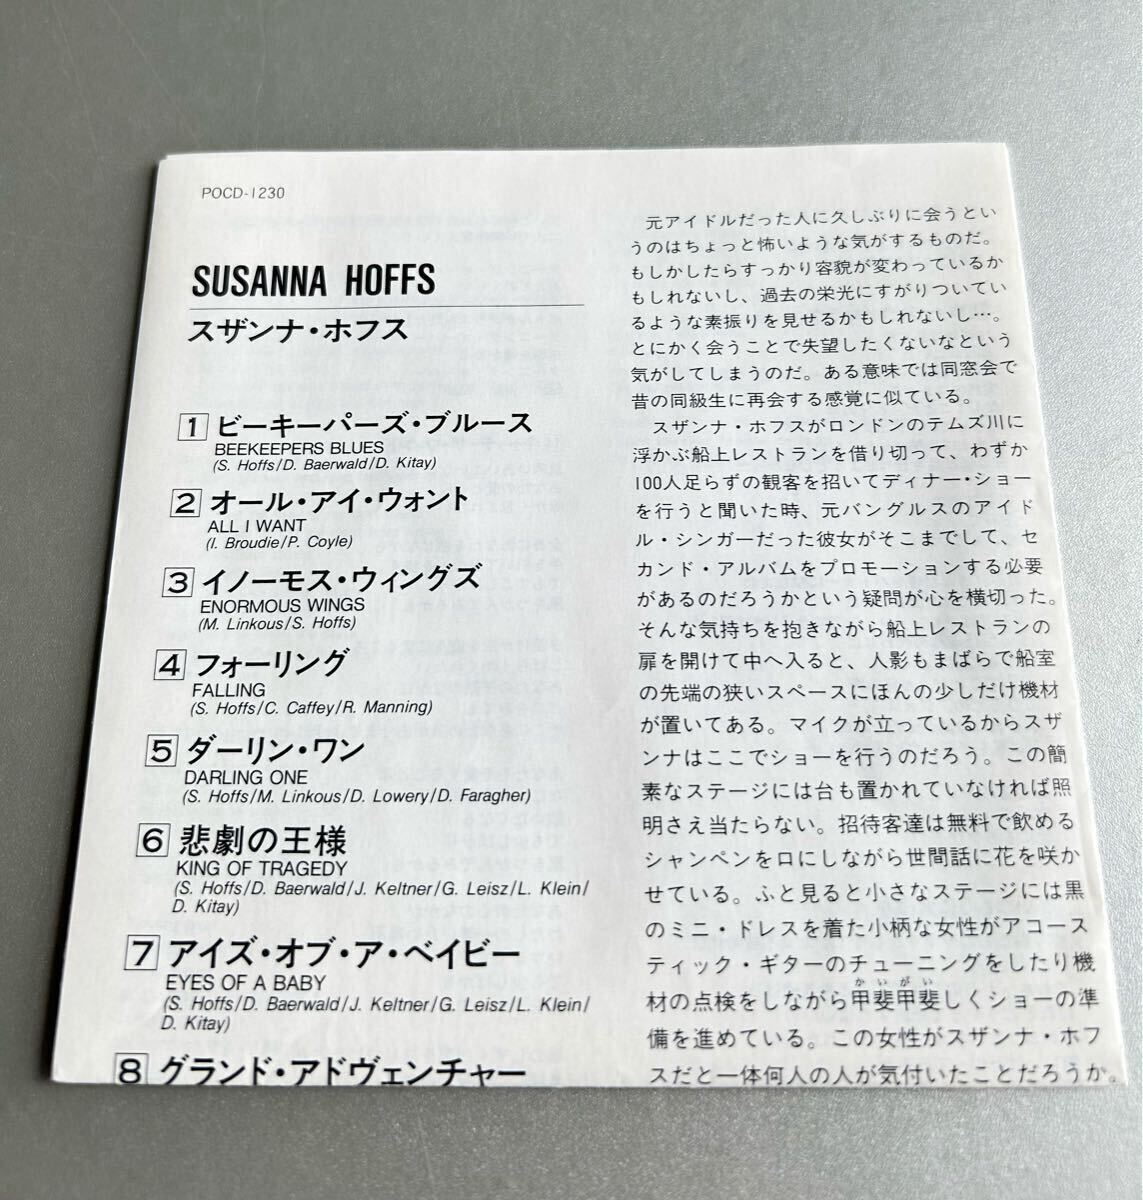 POCD-1230
SUSANNA HOFFS
スザンナ・ホフス
1 ビーキーパーズ・ブルース
BEEKEEPERS BLUES
(S. Hoffs/D. Baerwald/D. Kitay)
2 オール・アイ・ウォント
ALL I WANT
(I. Broudie/P. Coyle)
3 イノーモス・ウィングズ
ENORMOUS WINGS
(M. Linkous/S. Hoffs)
4 フォーリング
FALLING
(S. Hoffs/C. Caffey/R. Manning)
5 ダーリン・ワン
DARLING ONE
(S. Hoffs/M. Linkous/D. Lowery/D. Faragher)
6 悲劇の王様
KING OF TRAGEDY
(S. Hoffs/D. Baerwald/J. Keltner/G. Leisz/L. Klein/
D. Kitay)
7 アイズ・オブ・ア・ベイビー
EYES OF A BABY
(S. Hoffs/D. Baerwald/J. Keltner/G. Leisz/L. Klein/
D. Kitay)
8 グランド・アドヴェンチャー
元アイドルだった人に久しぶりに会うとい
うのはちょっと怖いような気がするものだ。
もしかしたらすっかり容貌が変わっているか
もしれないし、過去の栄光にすがりついてい
るような素振りを見せるかもしれないし…。
とにかく会うことで失望したくないなという
気がしてしまうのだ。ある意味では同窓会で
昔の同級生に再会する感覚に似ている。
スザンナ・ホフスがロンドンのテムズ川に
浮かぶ船上レストランを借り切って、わずか
100人足らずの観客を招いてディナー・ショー
を行うと聞いた時、元バングルスのアイド
ル・シンガーだった彼女がそこまでして、セ
カンド・アルバムをプロモーションする必要
があるのだろうかという疑問が心を横切った。
そんな気持ちを抱きながら船上レストランの
扉を開けて中へ入ると、人影もまばらで船室
の先端の狭いスペースにほんの少しだけ機材
が置いてある。マイクが立っているからスザ
ンナはここでショーを行うのだろう。この簡
素なステージには台も置かれていなければ照
明さえ当たらない。招待客達は無料で飲める
シャンペンを口にしながら世間話に花を咲か
せている。ふと見ると小さなステージには黒
のミニ・ドレスを着た小柄な女性がアコース
ティック・ギターのチューニングをしたり機
かいがい
材の点検をしながら甲斐甲斐しくショーの準
備を進めている。この女性がスザンナ・ホフ
スだと一体何人の人が気付いたことだろうか。